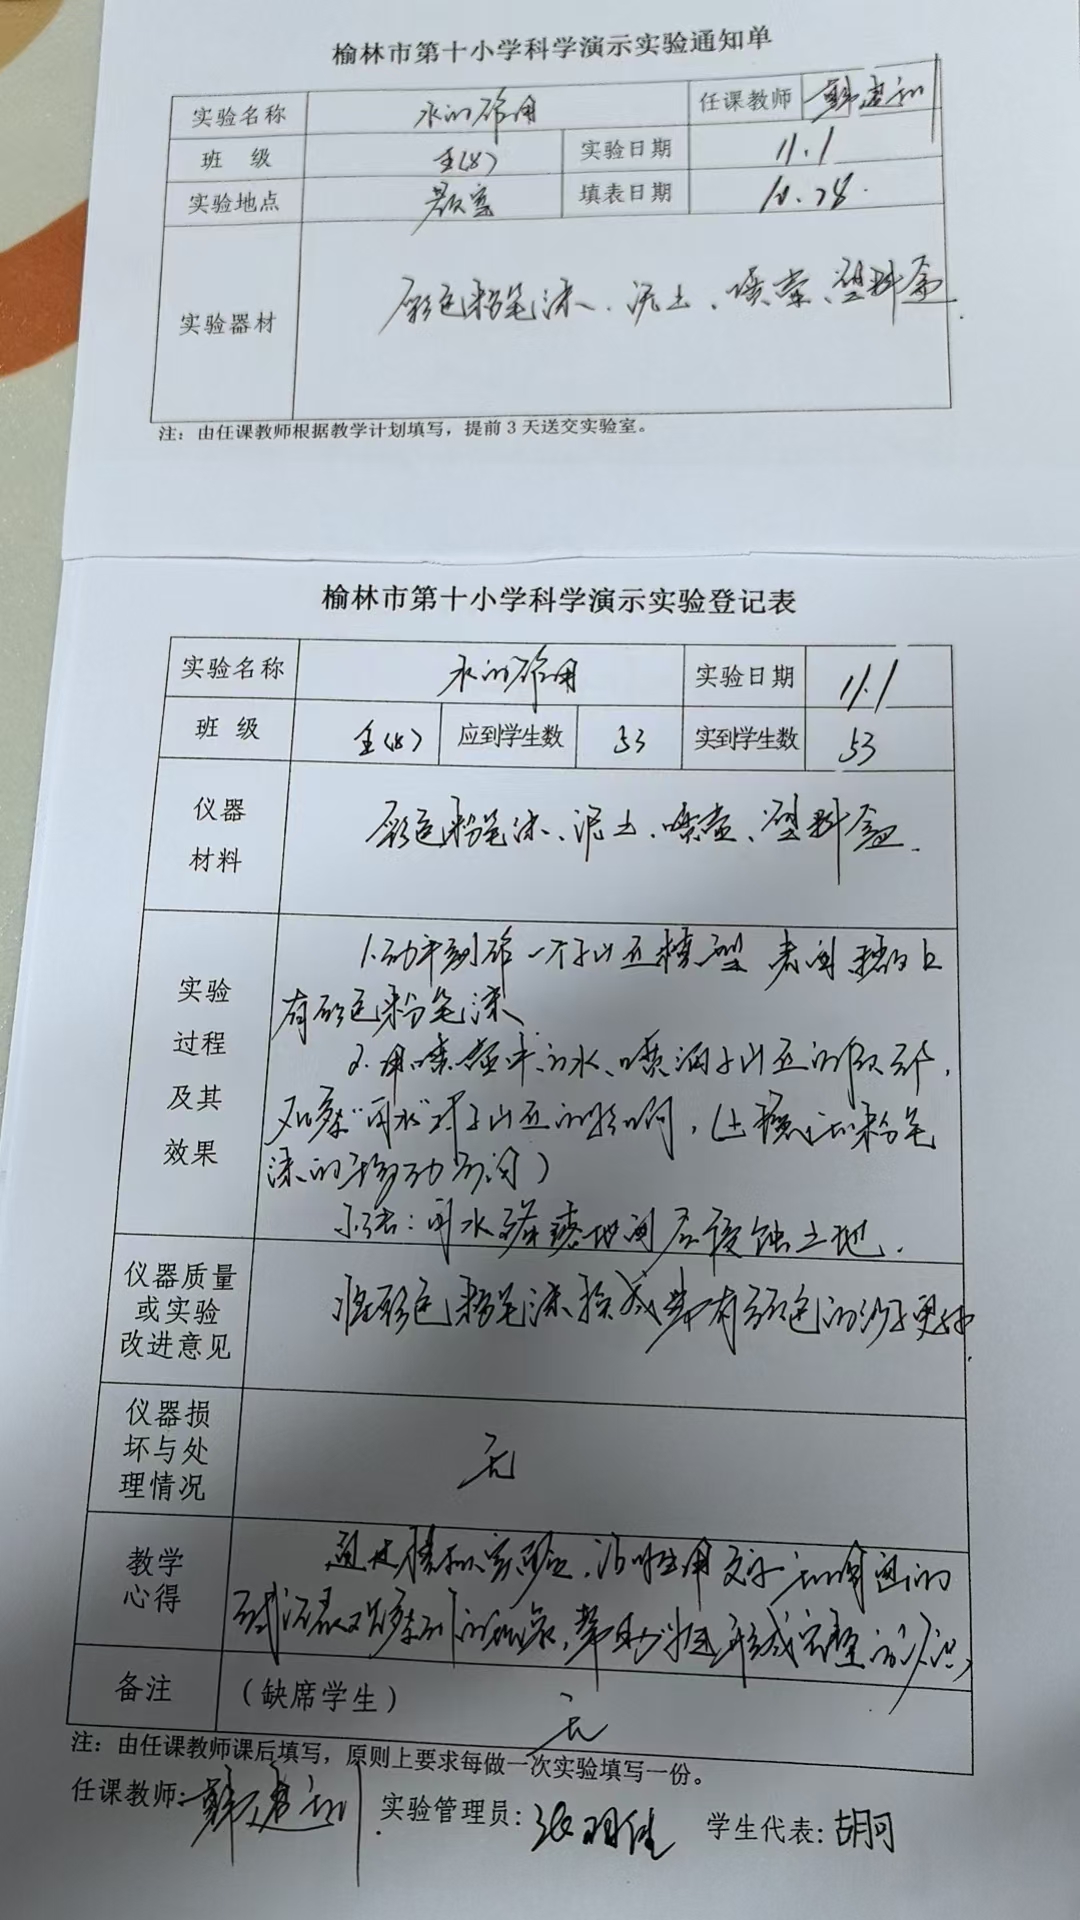 榆林市第十小学科学演示实验通知单
实验名称 水的作用 任课教师
班 级 实验日期 11.1
实验地点 教室 填表日期 10.28
实验器材 彩色粉笔沫、泥土、喷壶、塑料盒
注：由任课教师根据教学计划填写，提前3天送交实验室。
榆林市第十小学科学演示实验登记表
实验名称 水的作用 实验日期 11.1
班 级 应到学生数 53 实到学生数 53
仪器
材料 彩色粉笔沫、泥土、喷壶、塑料盒.
实验
过程
及其
效果
1.动手制作一个小山丘模型 表面
有彩色粉笔沫
2.用喷壶中的水、喷洒小山丘的顶部，
观察“雨水”对小山丘的影响，
沫的移动
小结：雨水降落地面后侵蚀土地.
仪器质量
或实验
改进意见
将彩色粉笔沫换成带有颜色的沙子更好.
仪器损
坏与处
理情况
无
教学
心得
通过模拟实验，
观察到的现象，帮助形成完整的认识
备注 （缺席学生） 无
注：由任课教师课后填写，原则上要求每做一次实验填写一份。
任课教师： 实验管理员： 学生代表：胡